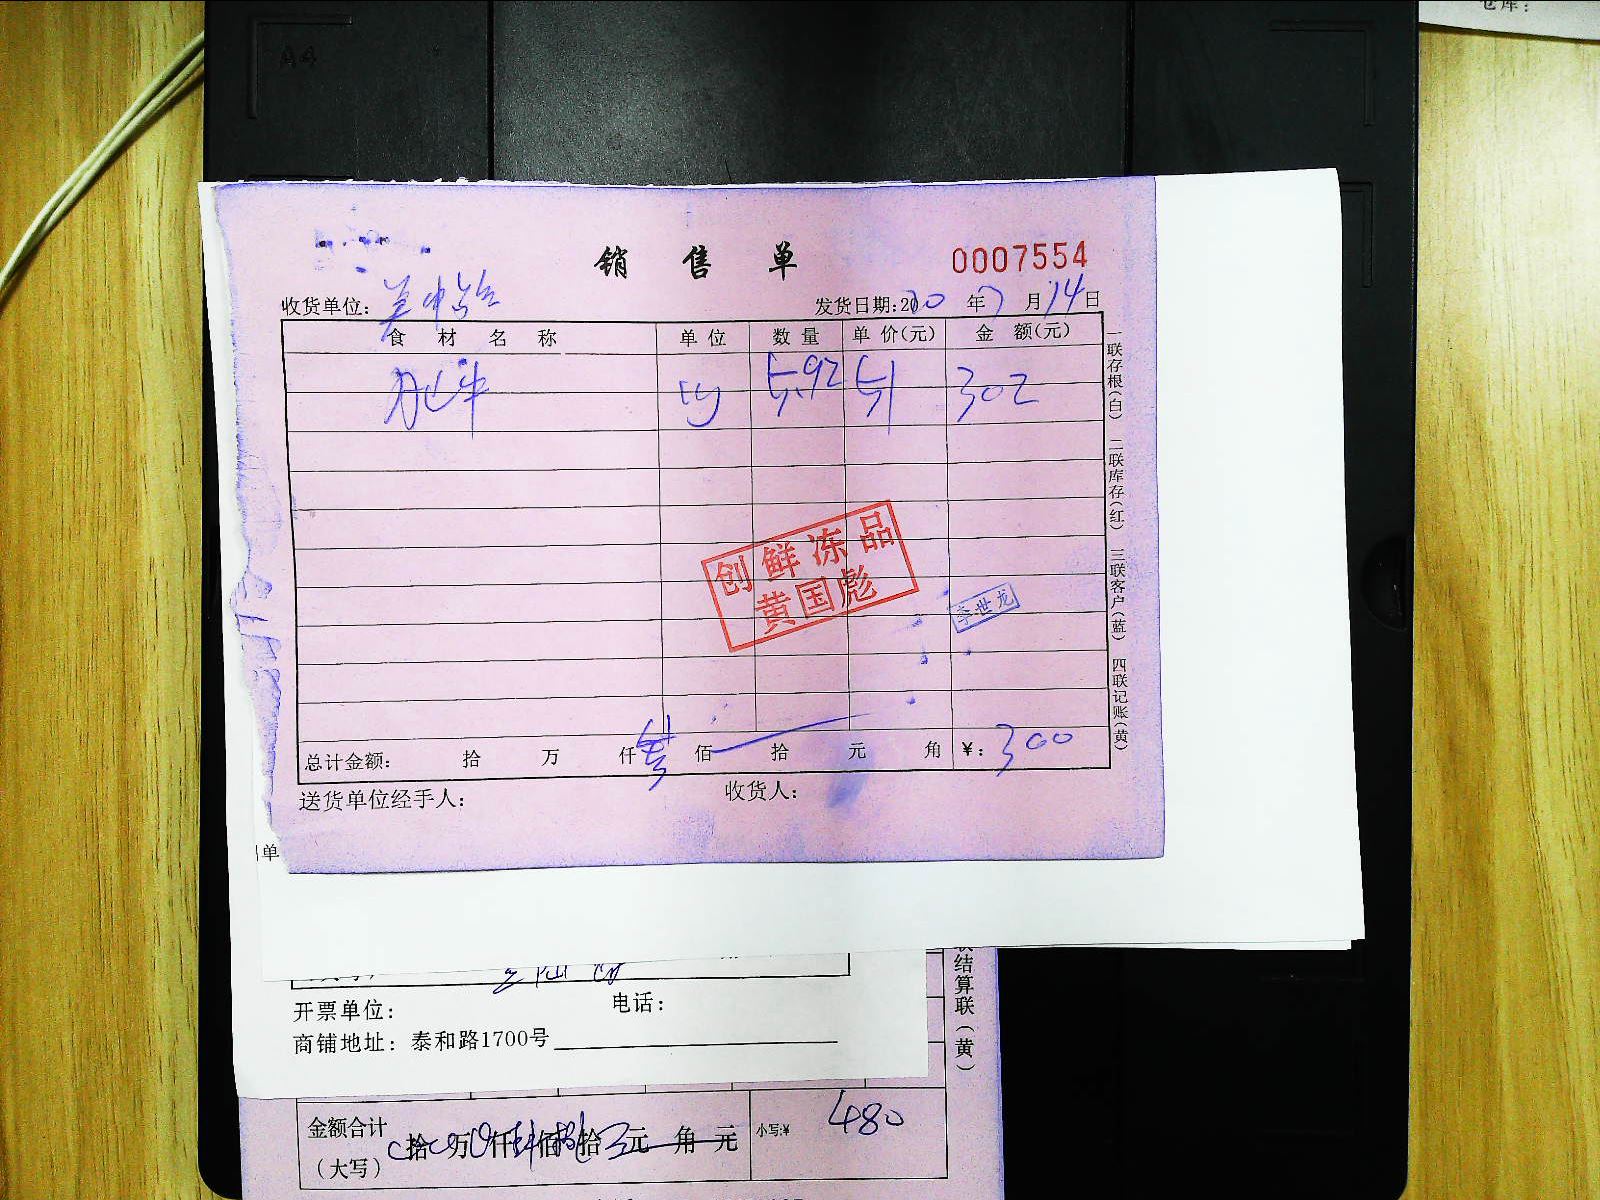 仓库:
A4
销售单
0007554
收货单位:
发货日期:2020年7月14日
食材名称 单位 数量 单价(元) 金额(元)
肥牛 5.92 51 302
创鲜冻品
黄国彪
李世龙
总计金额: 拾 万 仟 叁 佰 拾 元 角 ¥:300
送货单位经手人: 收货人:
一联存根(白) 二联库存(红) 三联客户(蓝) 四联记账(黄)
单
开票单位: 电话:
商铺地址:泰和路1700号
结算联(黄)
金额合计
(大写)
拾 万 仟 佰 拾 元 角 元 小写:¥ 480